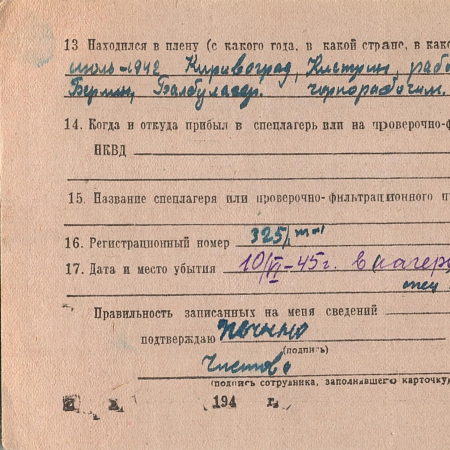 13 Находился в плену (с какого года, в какой стране, в како
июль-1942 Кировоград, Кистрин, рабо
Берлин, Балбулагер. чорнорабочим.
14. Когда и откуда прибыл в спецлагерь или на проверочно-ф
НКВД
15. Название спецлагеря или проверочно-фильтрационного п
16. Регистрационный номер 325/
17. Дата и место убытия 10/VI-45г. в лагерь
Правильность записанных на меня сведений
подтверждаю
(подпись)
Чистов
(подпись сотрудника, заполнявшего карточку)
194 г.